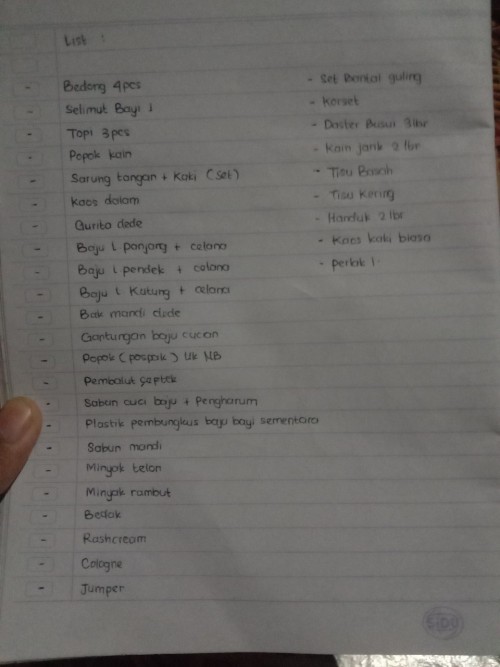 List :
- Bedong 4pcs
- Selimut Bayi 1
- Topi 3pcs
- Popok kain
- Sarung tangan + Kaki (Set)
- Kaos dalam
- Gurita dede
- Baju L panjang + celana
- Baju L pendek + celana
- Baju L Kutung + celana
- Bak mandi dede
- Gantungan baju cucian
- Popok (pospak) Uk NB
- Pembalut
- Sabun cuci baju + Pengharum
- Plastik pembungkus baju bayi sementara
- Sabun mandi
- Minyak telon
- Minyak rambut
- Bedak
- Rashcream
- Cologne
- Jumper
- Set Bantal guling
- Korset
- Daster Busui 3lbr
- Kain jarik 2 lbr
- Tisu Basah
- Tisu Kering
- Handuk 2 lbr
- Kaos kaki biasa
- Perlak 1
SIDU